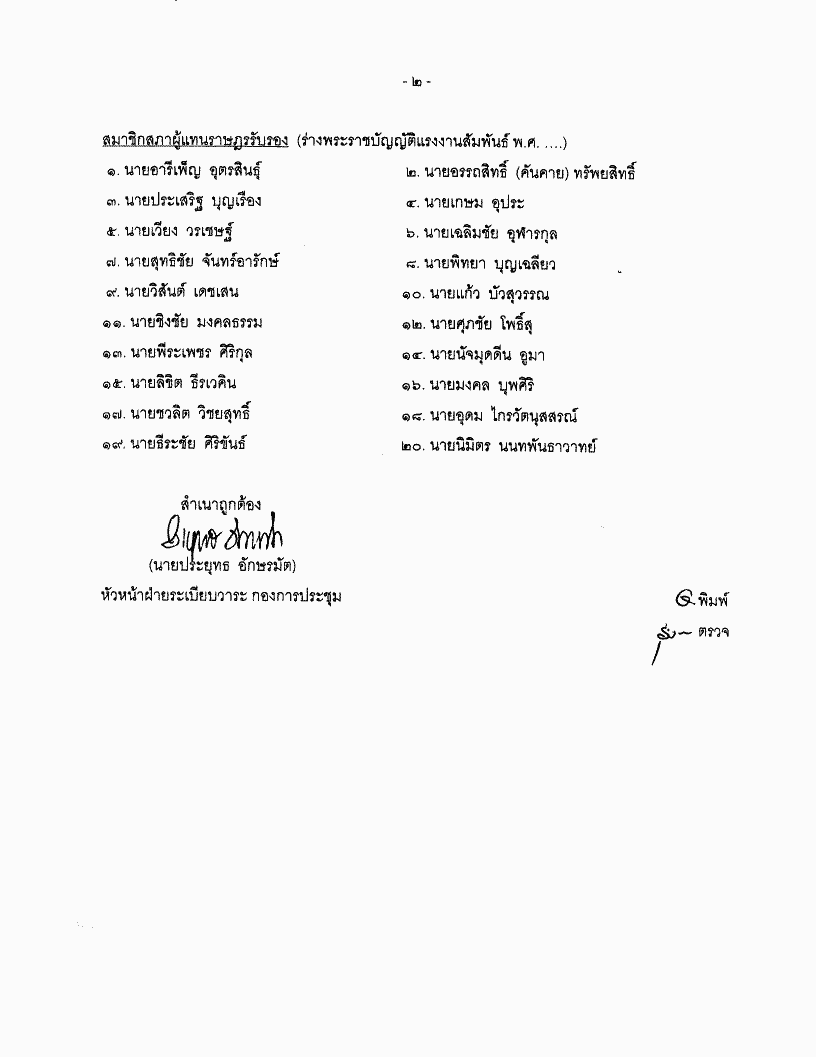 - ๒ -
สมาชิกสภาผู้แทนราษฎรรับรอง (ร่างพระราชบัญญัติแรงงานสัมพันธ์ พ.ศ. ....)
๑. นายอารีเพ็ญ อุตรสินธุ์ ๒. นายอรรถสิทธิ์ (คันคาย) ทรัพยสิทธิ์
๓. นายประเสริฐ บุญเรือง ๔. นายเกษม อุประ
๕. นายเวียง วรเชษฐ์ ๖. นายเฉลิมชัย อุฬารกุล
๗. นายสุทธิชัย จันทร์อารักษ์ ๘. นายพิทยา บุญเฉลียว
๙. นายวิสันต์ เดชเสน ๑๐. นายแก้ว บัวสุวรรณ
๑๑. นายชิงชัย มงคลธรรม ๑๒. นายศุภชัย โพธิ์สุ
๑๓. นายพีระเพชร ศิริกุล ๑๔. นายนัจมุดดีน อูมา
๑๕. นายลิขิต ธีรเวคิน ๑๖. นายมงคล บุพศิริ
๑๗. นายชวลิต วิชยสุทธิ์ ๑๘. นายอุดม ไกรวัตนุสสรณ์
๑๙. นายธีระชัย ศิริขันธ์ ๒๐. นายนิมิตร นนทพันธาวาทย์
สำเนาถูกต้อง
(นายประยุทธ อักษรมัต)
หัวหน้าฝ่ายระเบียบวาระ กองการประชุม
พิมพ์
ตรวจ